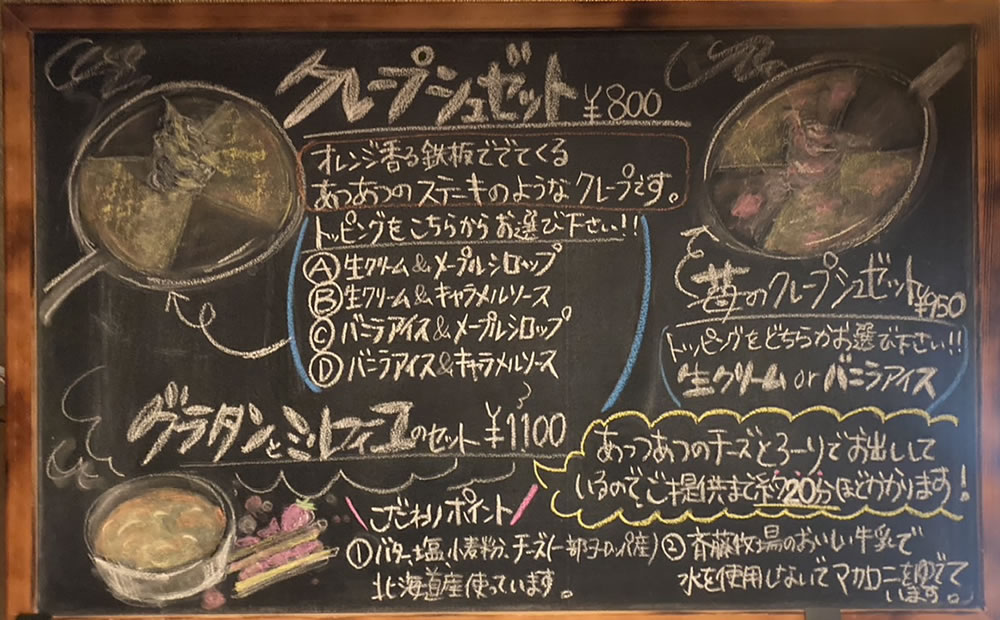 クレープシュゼット ¥800
オレンジ香る鉄板ででてくる
あつあつのステーキのようなクレープです。
トッピングをこちらからお選び下さい!!
Ⓐ生クリーム&メープルシロップ
Ⓑ生クリーム&キャラメルソース
Ⓒバニラアイス&メープルシロップ
Ⓓバニラアイス&キャラメルソース
苺のクレープシュゼット ¥950
トッピングをどちらかお選び下さい!!
生クリーム or バニラアイス
グラタンとミルフィユのセット ¥1100
あつあつのチーズとろーりでお出しして
いるので、ご提供まで約20分ほどかかります!
こだわりポイント
①バター、塩、小麦粉、チーズ(一部ヨーロッパ産)
北海道産使っています。
②斉藤牧場のおいしい牛乳で
水を使用しないでマカロニをゆでて
います。